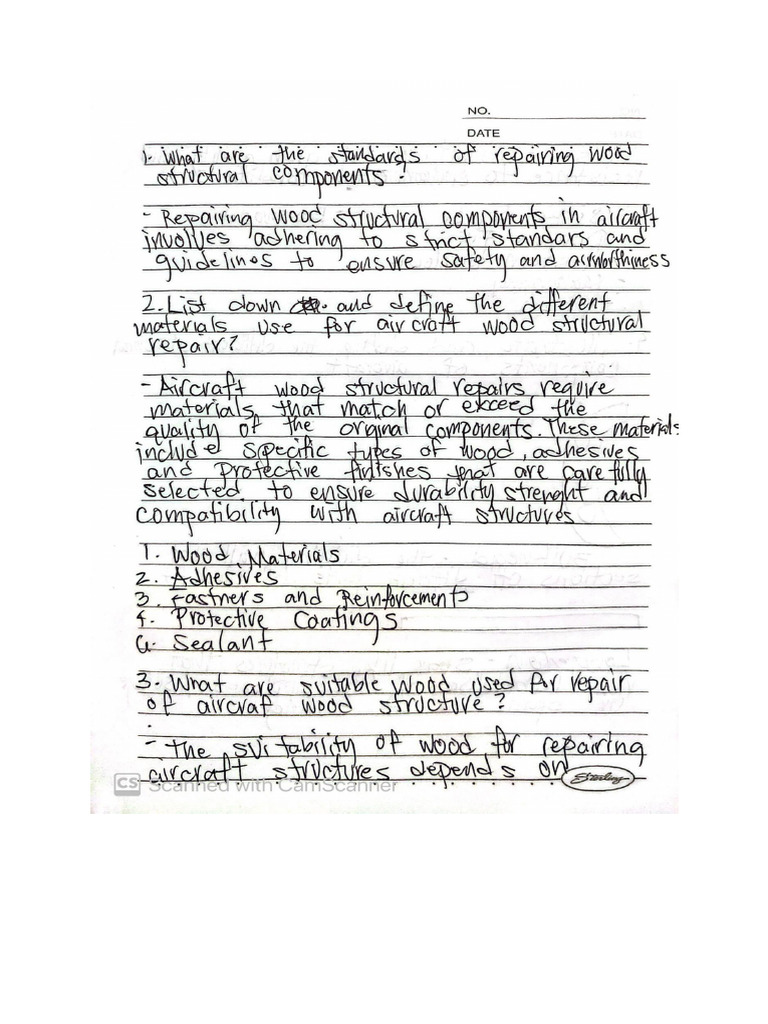 NO.
DATE
1. What are the standards of repairing wood
structural components?
- Repairing wood structural components in aircraft
involves adhering to strict standars and
guidelines to ensure safety and airworthiness
2. List down and define the different
materials use for air craft wood structural
repair?
- Aircraft wood structural repairs require
materials that match or exceed the
quality of the orginal components. These materials
include specific types of wood, adhesives
and Protective finishes that are carefully
selected to ensure durability strenght and
compatibility with aircraft structures
1. Wood Materials
2. Adhesives
3. Fastners and Reinforcements
4. Protective Coatings
6. Sealant
3. What are suitable wood used for repair
of aircraf wood structure?
- The suitability of wood for repairing
aircraft structures depends on
Sterling
CS Scanned with CamScanner